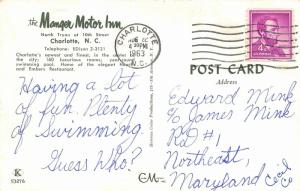 the Manger Motor Inn
North Tryon at 10th Street
Charlotte, N. C.
Telephone: EDison 2-3121
Charlotte's newest and finest, in the center of
the city: 160 luxurious rooms, year-round
swimming pool. Home of the
and Embers Restaurant.
CHARLOTTE
4 30PM
1963
N.C.
4¢
POST CARD
Address
Having a lot
of fun Plenty
of Swimming
Guess Who?
Edward Mink
% James Mink
RD#1
Northeast,
Maryland
Cecil
Co
K
93296